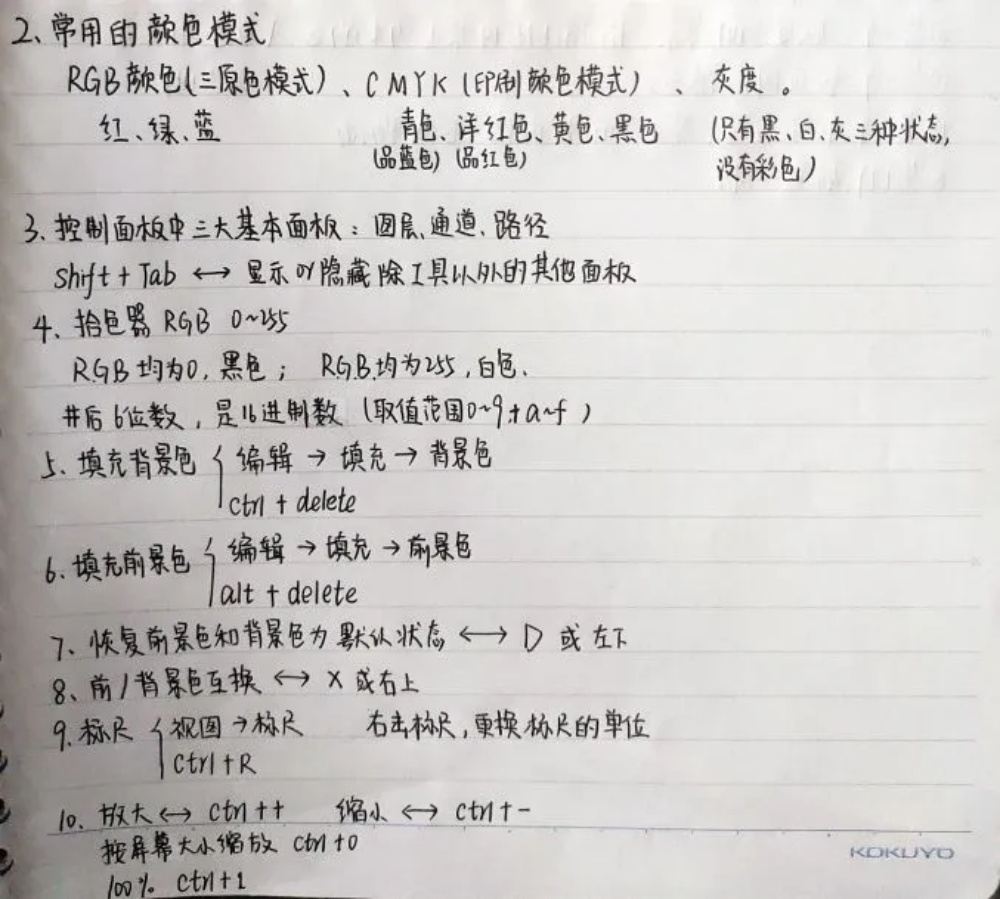 2、常用的颜色模式
RGB颜色(三原色模式)、CMYK(印刷颜色模式)、灰度。
红、绿、蓝 青色、洋红色、黄色、黑色 (只有黑、白、灰三种状态,
(品蓝色) (品红色) 没有彩色)
3、控制面板中三大基本面板:图层、通道、路径
Shift + Tab ↔ 显示or隐藏除工具以外的其他面板
4、拾色器 RGB 0~255
RGB均为0,黑色; RGB均为255,白色.
#后6位数,是16进制数(取值范围0~9+a~f)
5、填充背景色 { 编辑 → 填充 → 背景色
ctrl + delete
6、填充前景色 { 编辑 → 填充 → 前景色
alt + delete
7、恢复前景色和背景色为默认状态 ↔ D 或左下
8、前/背景色互换 ↔ X 或右上
9、标尺 { 视图 → 标尺 右击标尺,更换标尺的单位
Ctrl+R
10、放大 ↔ ctrl ++ 缩小 ↔ ctrl+-
按屏幕大小缩放 ctrl+0
100% ctrl+1
KOKUYO